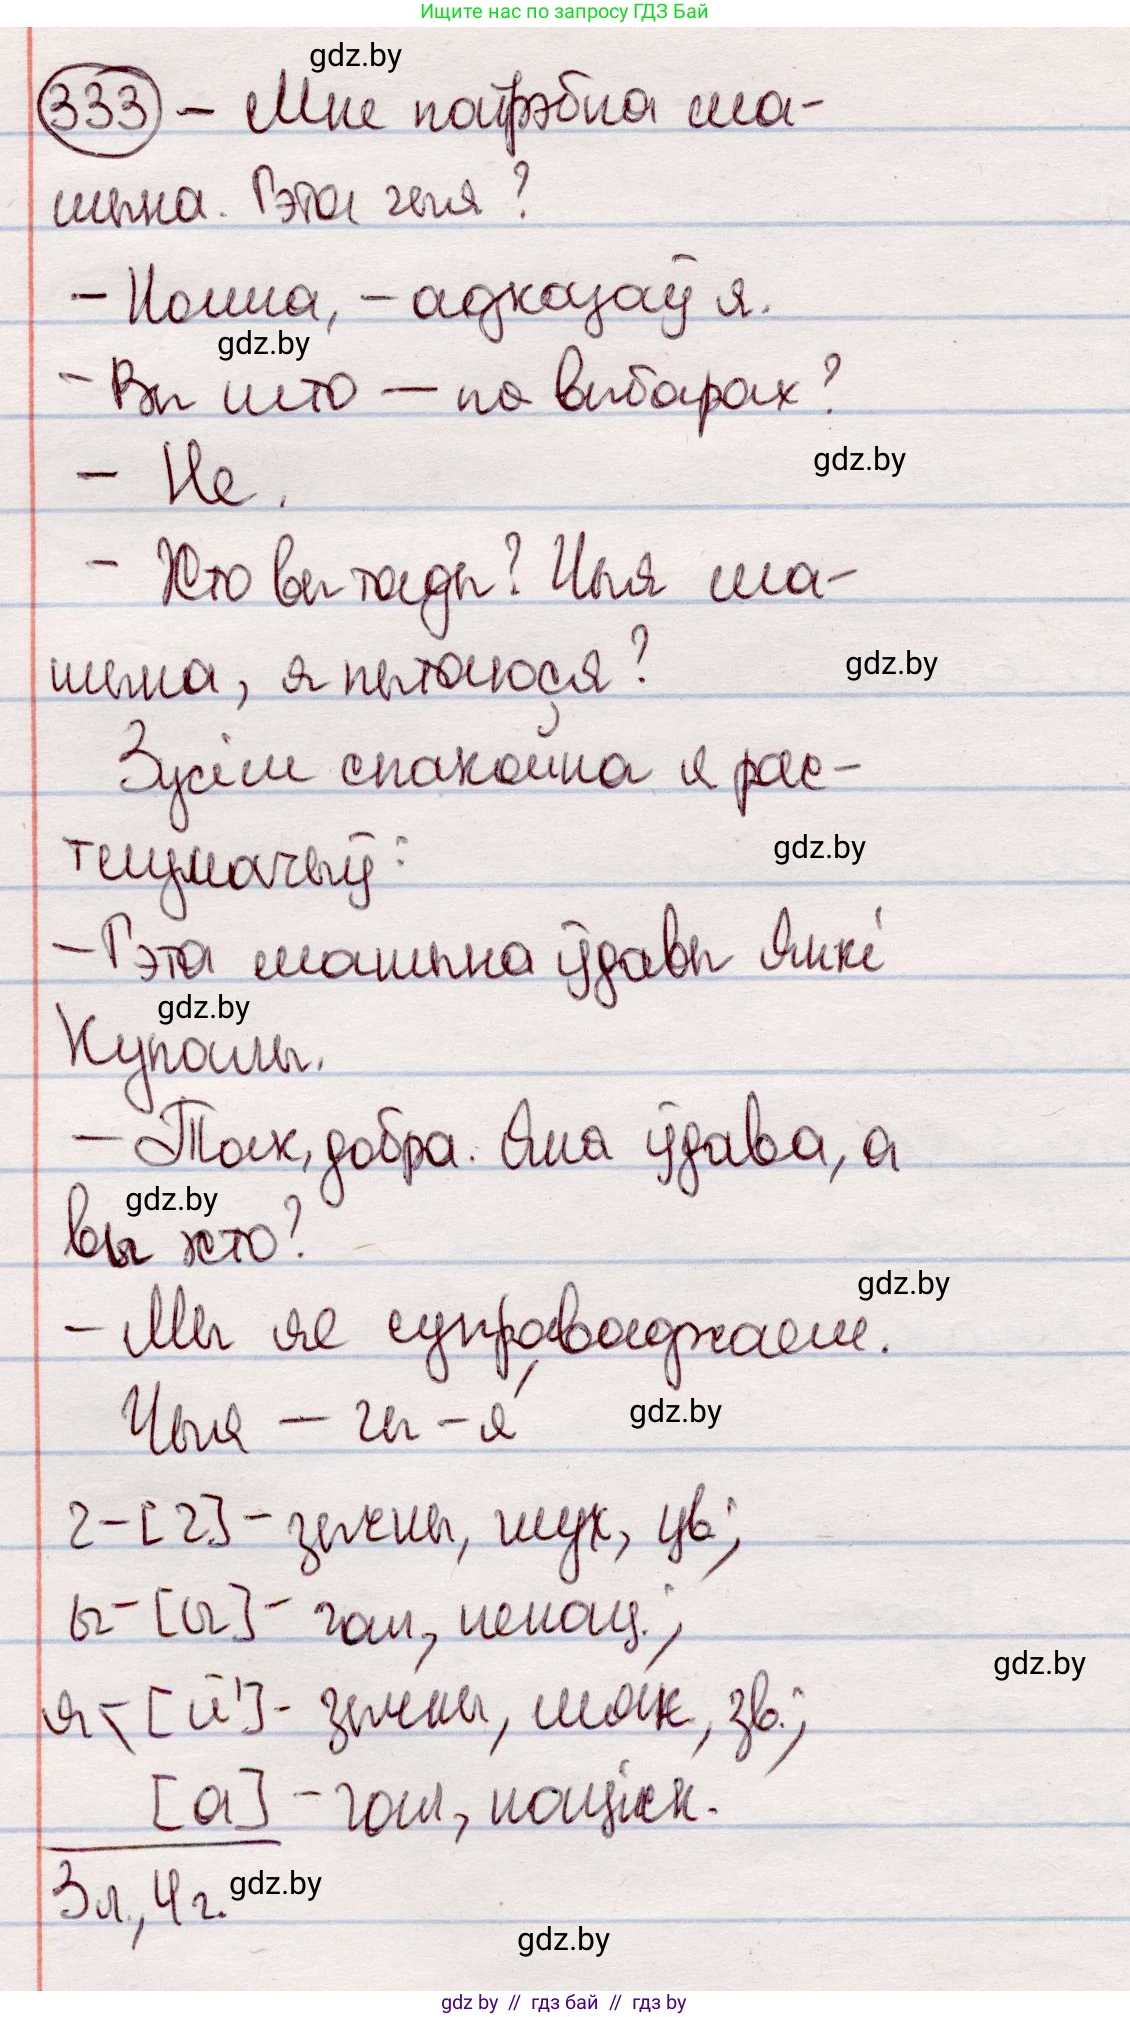 Ищите нас по запросу ГДЗ Бай
gdz.by
333 – Мне патрэбна ма-
шына. Гэта чыя?
– Наша, – адказаў я.
gdz.by
– Вы што – па выбарах?
gdz.by
– Не.
– Хто вы тады? Чыя ма-
шына, я пытаюся?
gdz.by
Зусім спакойна я рас-
тлумачыў:
gdz.by
– Гэта машына ўдавы Янкі
gdz.by
Купалы.
– Так, добра. Яна ўдава, а
gdz.by
вы хто?
gdz.by
– Мы яе суправаджаем.
Чыя – чы-я́
gdz.by
ч – [ч] – зычны, глух, цв.;
ы – [ы] – гал, ненац.;
gdz.by
я – [й'] – зычны, мяк, зв.;
[а] – гал, націск.
3 л., 4 г.
gdz.by
gdz.by
gdz by // гдз бай // гдз by